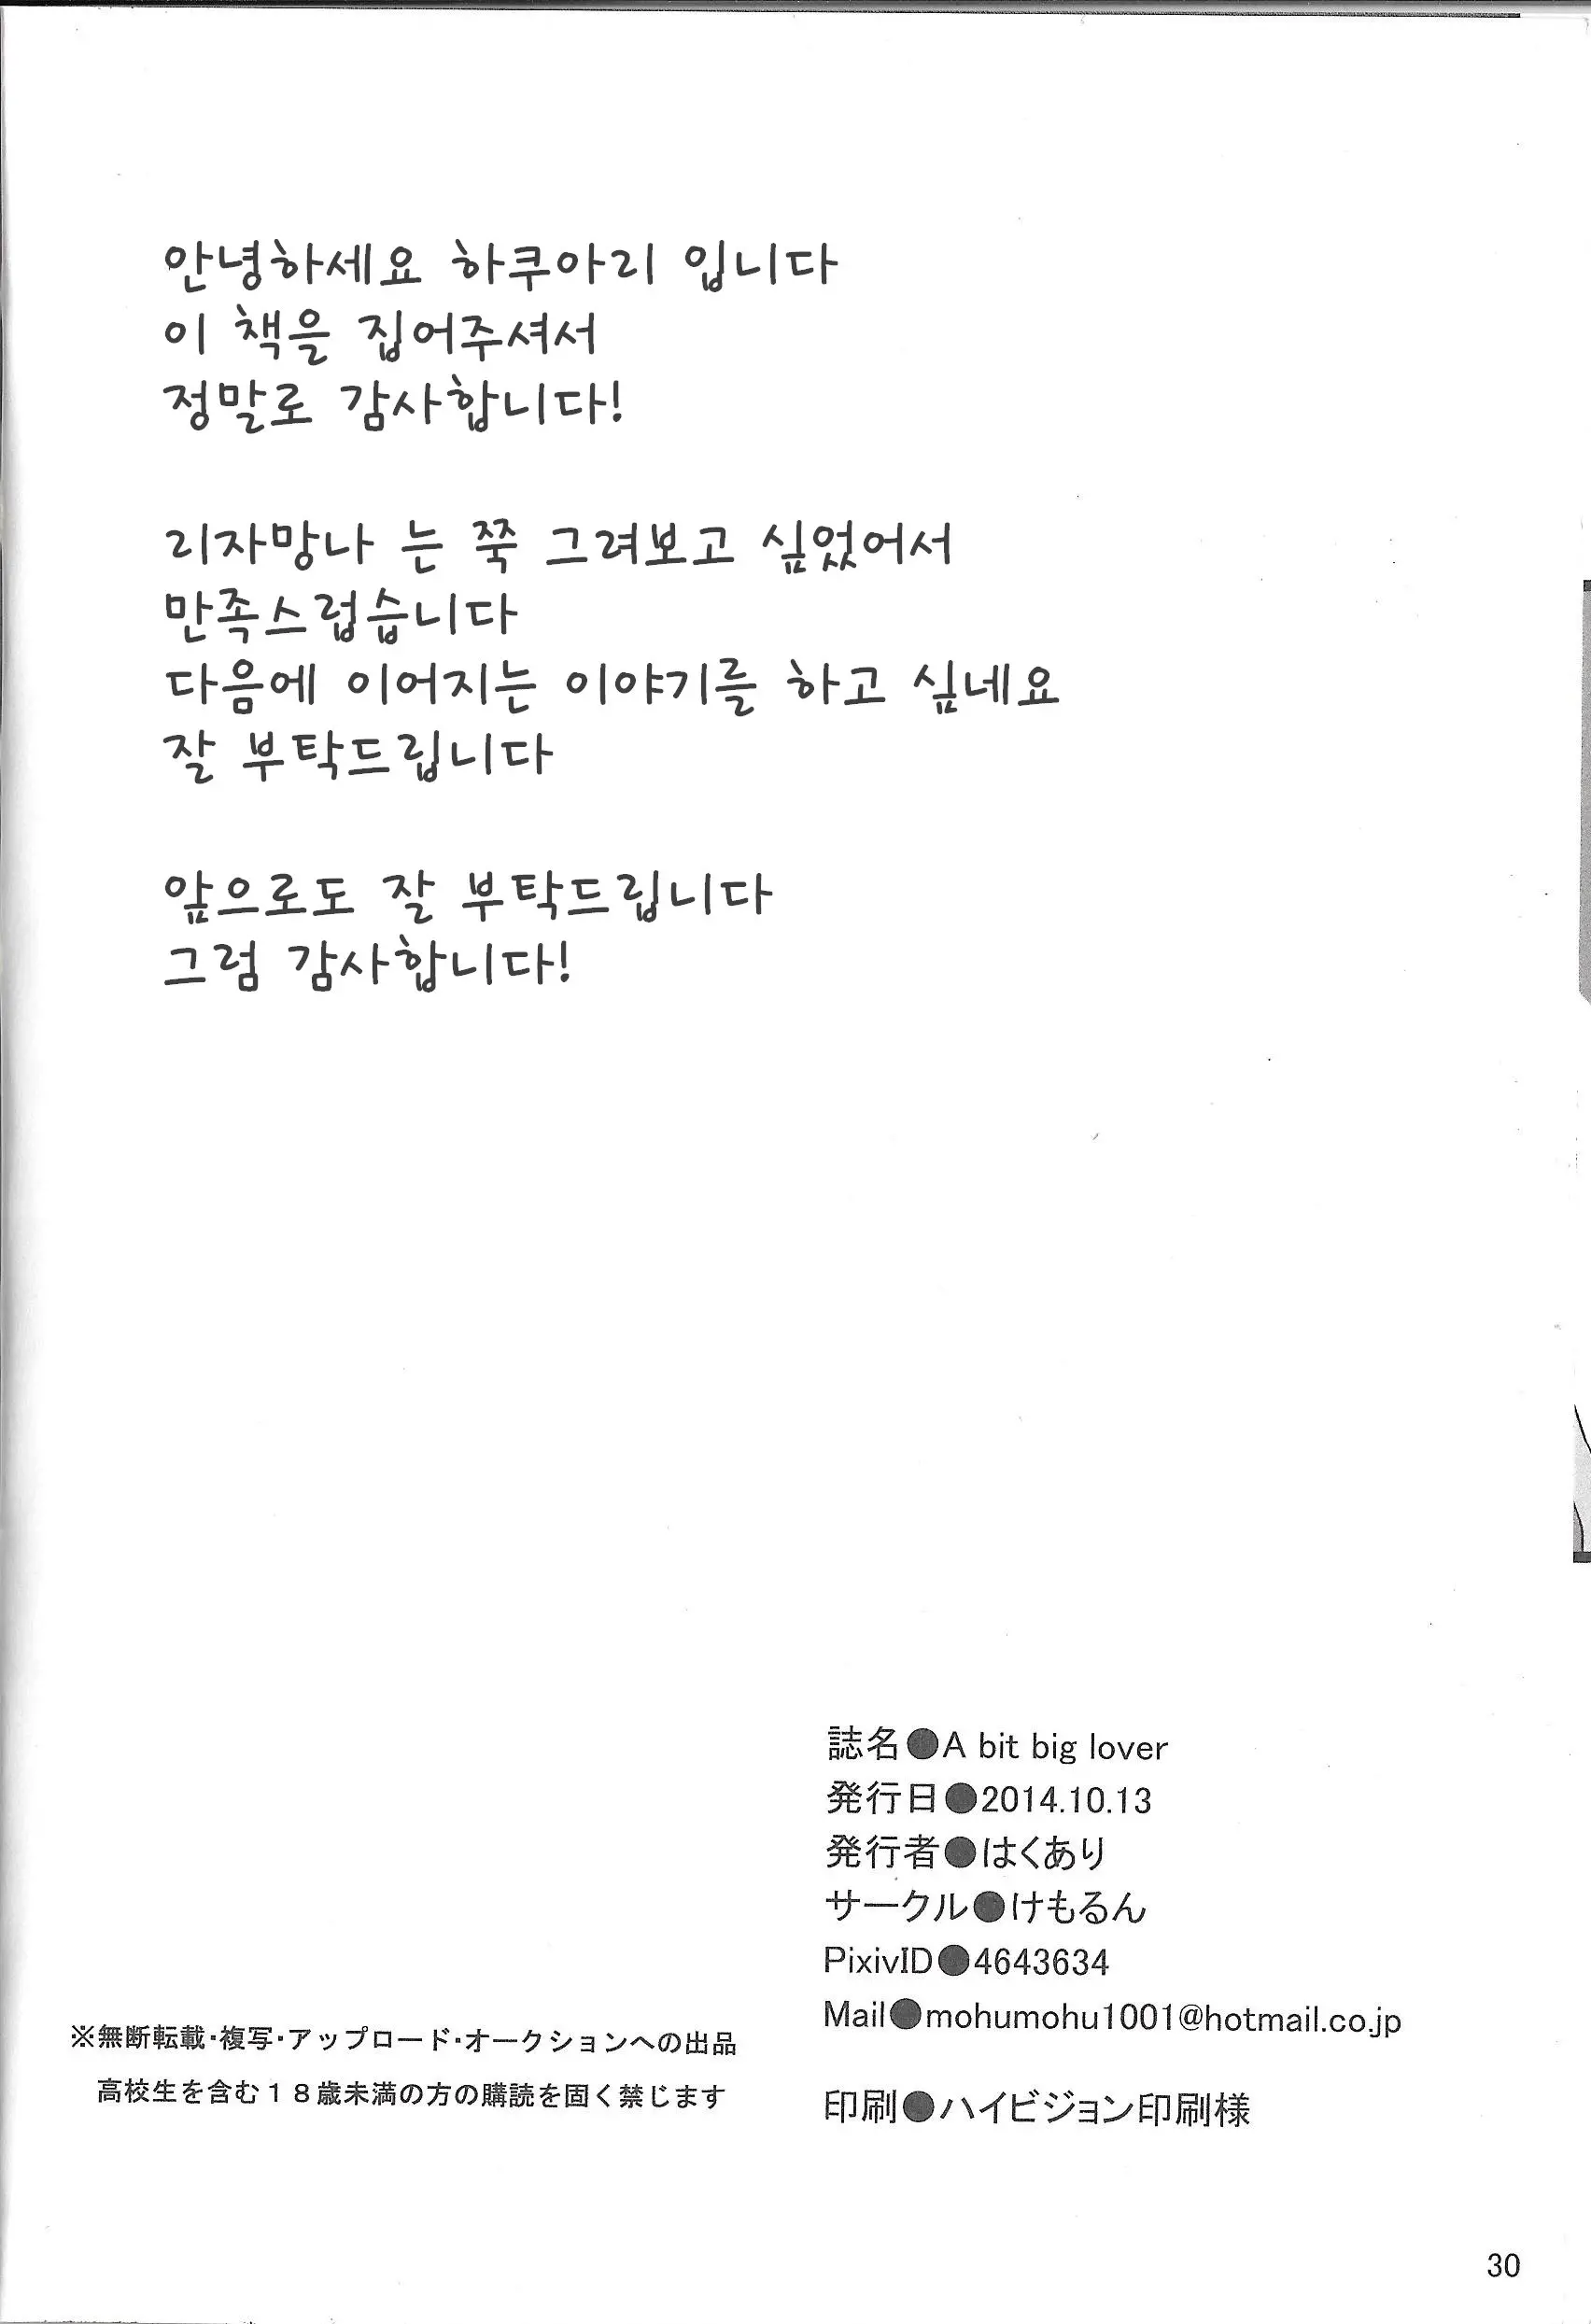 안녕하세요 하쿠아리 입니다
이 책을 집어주셔서
정말로 감사합니다!
리자망나 는 쭉 그려보고 싶었어서
만족스럽습니다
다음에 이어지는 이야기를 하고 싶네요
잘 부탁드립니다
앞으로도 잘 부탁드립니다
그럼 감사합니다!
誌名●A bit big lover
発行日●2014.10.13
発行者●はくあり
サークル●けもるん
PixivID●4643634
Mail●mohumohu1001@hotmail.co.jp
印刷●ハイビジョン印刷様
※無断転載・複写・アップロード・オークションへの出品
高校生を含む18歳未満の方の購読を固く禁じます
30